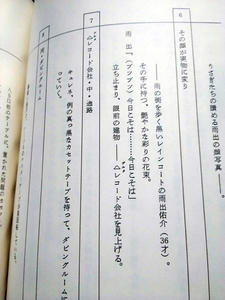 うさぎたちの読める雨出の顔写真――。
その顔が実物に変り
6
――雨の街を歩く黒いレインコートの雨出佑介(36才)。
その手に持つ、艶やかな彩りの花束。
雨 出「(ブツブツ)今日こそは……今日こそは」
立ち止まり、眼前の建物――△△レコード会社を見上げる。
7
△△レコード会社・中・通路
キョン子、例の真っ黒なカセットテープを持って、ダビングルームに
っていく。
8 同・ダビングルーム